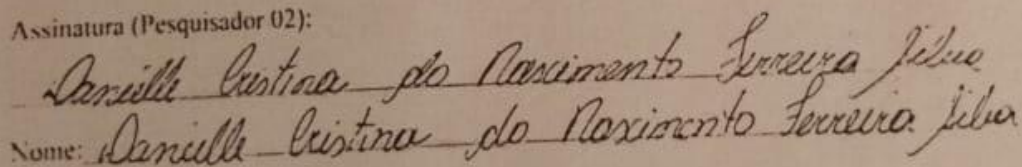 Assinatura (Pesquisador 02):
Danielle Cristina do Nascimento Ferreira Silva
Nome: Danielle Cristina do Nascimento Ferreira Silva